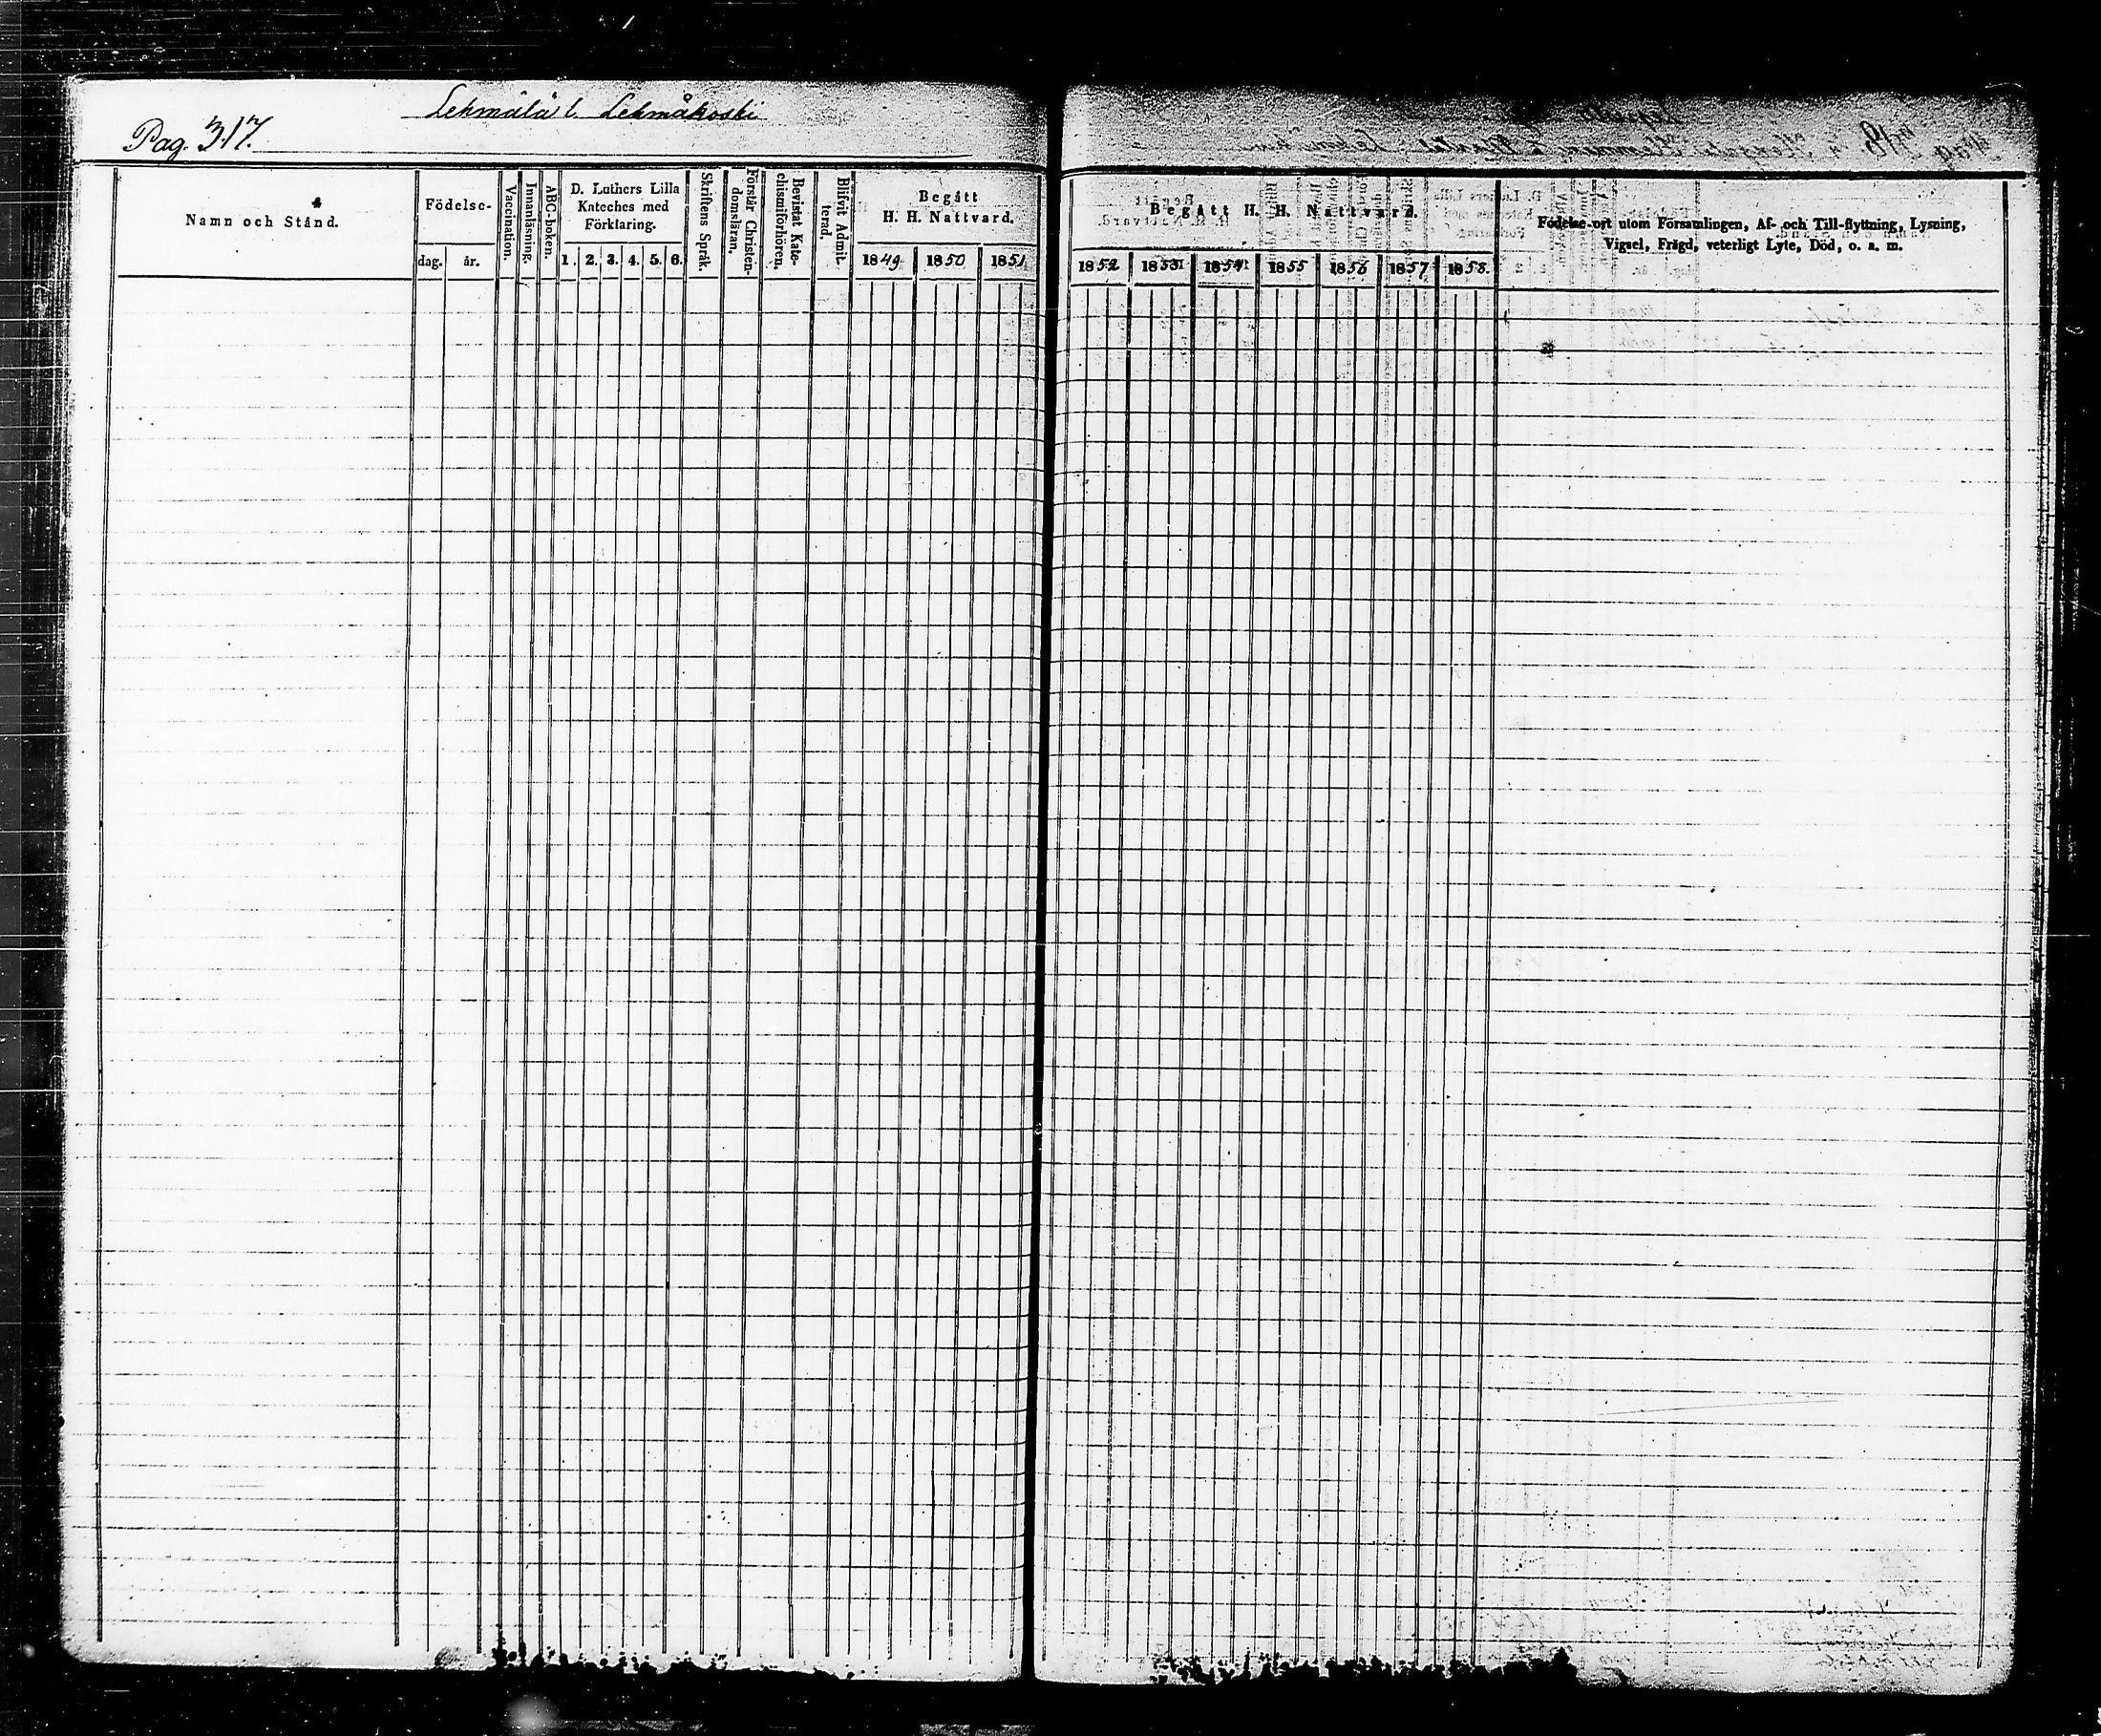 Lehmälä l. Lehmäkoski
Pag. 317.
Namn och Stånd.
Födelse-
dag. år.
Vaccination.
Innanläsning.
ABC-boken.
D. Luthers Lilla
Kateches med
Förklaring.
1. 2. 3. 4. 5. 6.
Skriftens Språk.
Förstår Christen-
domsläran.
Bevistat Kate-
chismiförhören.
Blifvit Admit-
terad.
Begått
H. H. Nattvard.
1849 1850 1851
Begått H. H. Nattvard.
1852 1853 1854 1855 1856 1857 1858.
Födelse-ort utom Församlingen, Af- och Till-flyttning, Lysning,
Vigsel, Frägd, veterligt Lyte, Död, o. s. m.